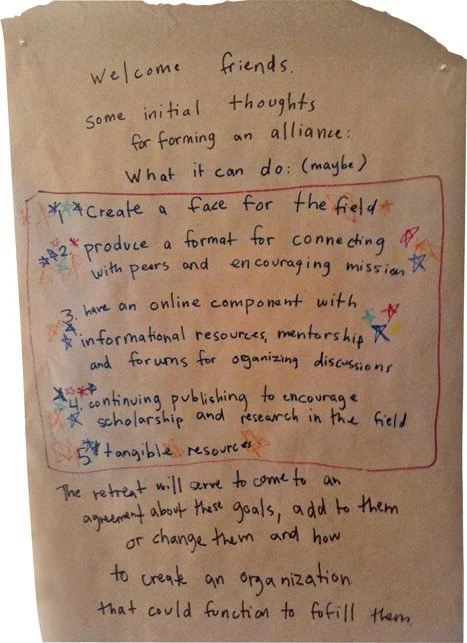 Welcome friends.
some initial thoughts
for forming an alliance:
What it can do: (maybe)
1. Create a face for the field
2. produce a format for connecting
with peers and encouraging mission
3. have an online component with
informational resources, mentorship
and forums for organizing discussions
4. continuing publishing to encourage
scholarship and research in the field
5. tangible resources
The retreat will serve to come to an
agreement about these goals, add to them
or change them and how
to create an organization
that could function to fofill them.